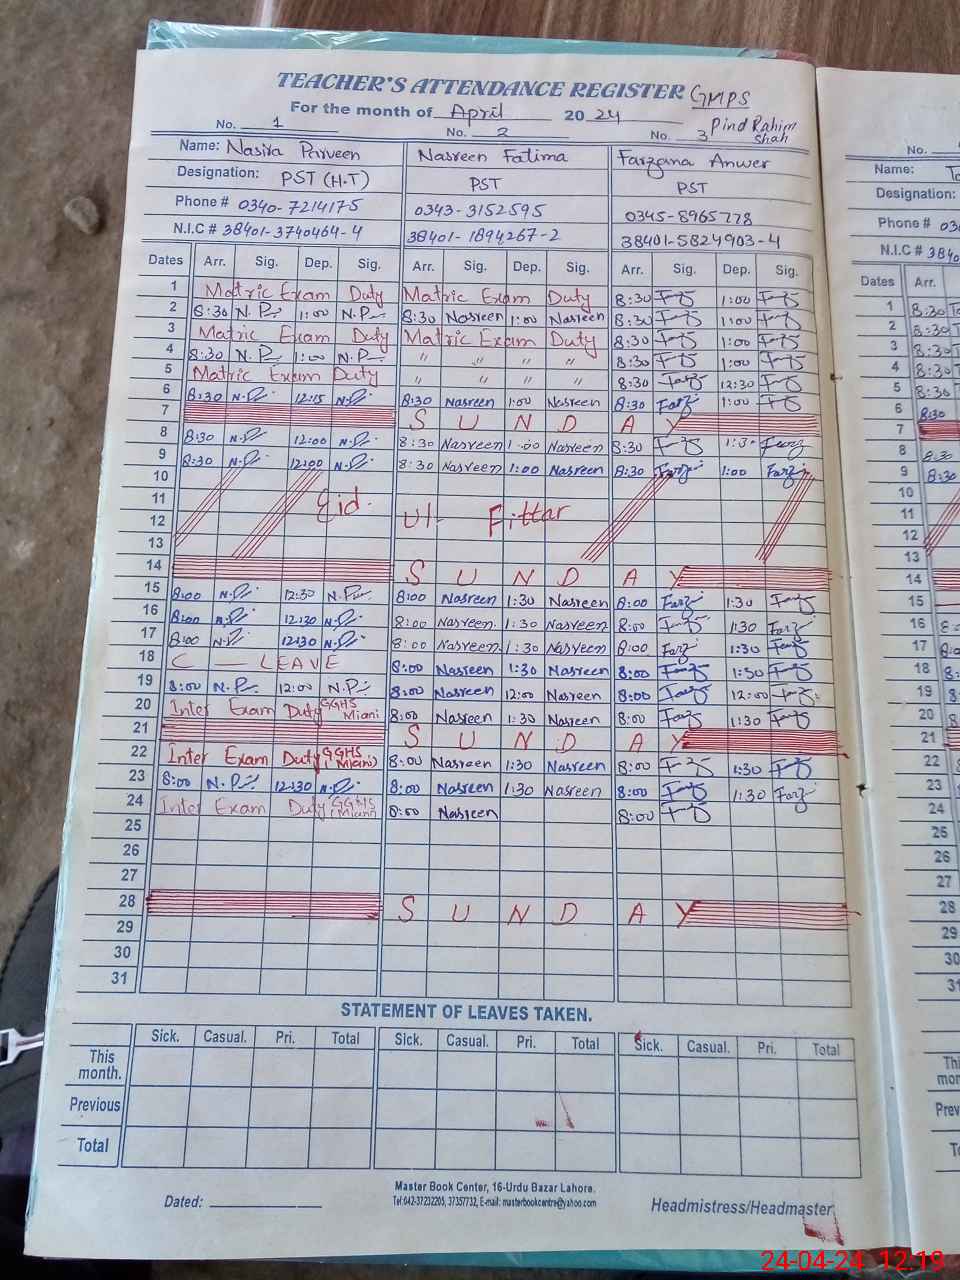 TEACHER'S ATTENDANCE REGISTER GMPS
For the month of April 2024 Pind Rahim Shah
No. 1 No. 2 No. 3 No.
Name: Nasira Parveen Nasreen Fatima Farzana Anwer Name:
Designation: PST (H.T) PST PST Designation:
Phone # 0340-7214175 0343-3152595 0345-8965778 Phone # 03
N.I.C # 38401-3740464-4 38401-1894267-2 38401-5824903-4 N.I.C # 3840
Dates Arr. Sig. Dep. Sig. Arr. Sig. Dep. Sig. Arr. Sig. Dep. Sig. Dates Arr.
1 Matric Exam Duty Matric Exam Duty 8:30 1:00 1 8:30
2 8:30 N.P 1:00 N.P 8:30 Nasreen 1:00 Nasreen 8:30 1:00 2 8:30
3 Matric Exam Duty Matric Exam Duty 8:30 1:00 3 8:30
4 8:30 N.P 1:00 N.P " " " " 8:30 1:00 4 8:30
5 Matric Exam Duty " " " " 8:30 Farz 12:30 5 8:30
6 8:30 N.P 12:15 N.P 8:30 Nasreen 1:00 Nasreen 8:30 Farz 1:00 6 8:30
7 S U N D A Y 7
8 8:30 N.P 12:00 N.P 8:30 Nasreen 1:00 Nasreen 8:30 1:30 Farz 8 8:30
9 8:30 N.P 12:00 N.P 8:30 Nasreen 1:00 Nasreen 8:30 Farz 1:00 Farz 9 8:30
10 10
11 Eid Ul- Fittar 11
12 12
13 13
14 S U N D A Y 14
15 8:00 N.P 12:30 N.P 8:00 Nasreen 1:30 Nasreen 8:00 Farz 1:30 15
16 8:00 N.P 12:30 N.P 8:00 Nasreen 1:30 Nasreen 8:00 1:30 Farz 16
17 8:00 N.P 12:30 N.P 8:00 Nasreen 1:30 Nasreen 8:00 Farz 1:30 17
18 C — LEAVE 8:00 Nasreen 1:30 Nasreen 8:00 1:30 18
19 8:00 N.P 12:00 N.P 8:00 Nasreen 12:00 Nasreen 8:00 12:00 19
20 Inter Exam Duty GGHS Miani 8:00 Nasreen 1:30 Nasreen 8:00 Farz 1:30 20
21 S U N D A Y 21
22 Inter Exam Duty (GGHS Miani) 8:00 Nasreen 1:30 Nasreen 8:00 1:30 22
23 8:00 N.P 12:30 N.P 8:00 Nasreen 1:30 Nasreen 8:00 1:30 Farz 23
24 Inter Exam Duty (GGHS Miani) 8:00 Nasreen 8:00 24
25 25
26 26
27 27
28 S U N D A Y 28
29 29
30 30
31 31
STATEMENT OF LEAVES TAKEN.
Sick. Casual. Pri. Total Sick. Casual. Pri. Total Sick. Casual. Pri. Total
This month.
Previous
Total
Master Book Center, 16-Urdu Bazar Lahore.
Tel:042-37232205, 37357732, E-mail: masterbookcentre@yahoo.com
Dated: Headmistress/Headmaster
24-04-24 12:19